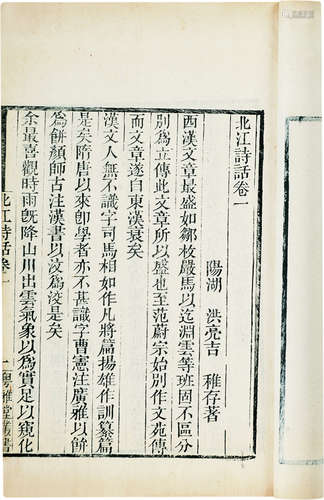 北江詩話卷一
陽湖 洪亮吉 稚存著
西漢文章最盛如鄒枚嚴馬以迄淵雲等班固不區分
别為立傳此文章所以盛也至范蔚宗始别作文苑傳
而文章遂自東漢衰矣
漢文人無不識字司馬相如作凡將篇揚雄作訓纂篇
是矣隋唐以來即學者亦不甚識字曹憲注廣雅以餠
為餅顏師古注漢書以汶為洨是矣
余最喜觀時雨旣降山川出雲氣象以為實足以窺化
北江詩話卷一
一
粵雅堂叢書